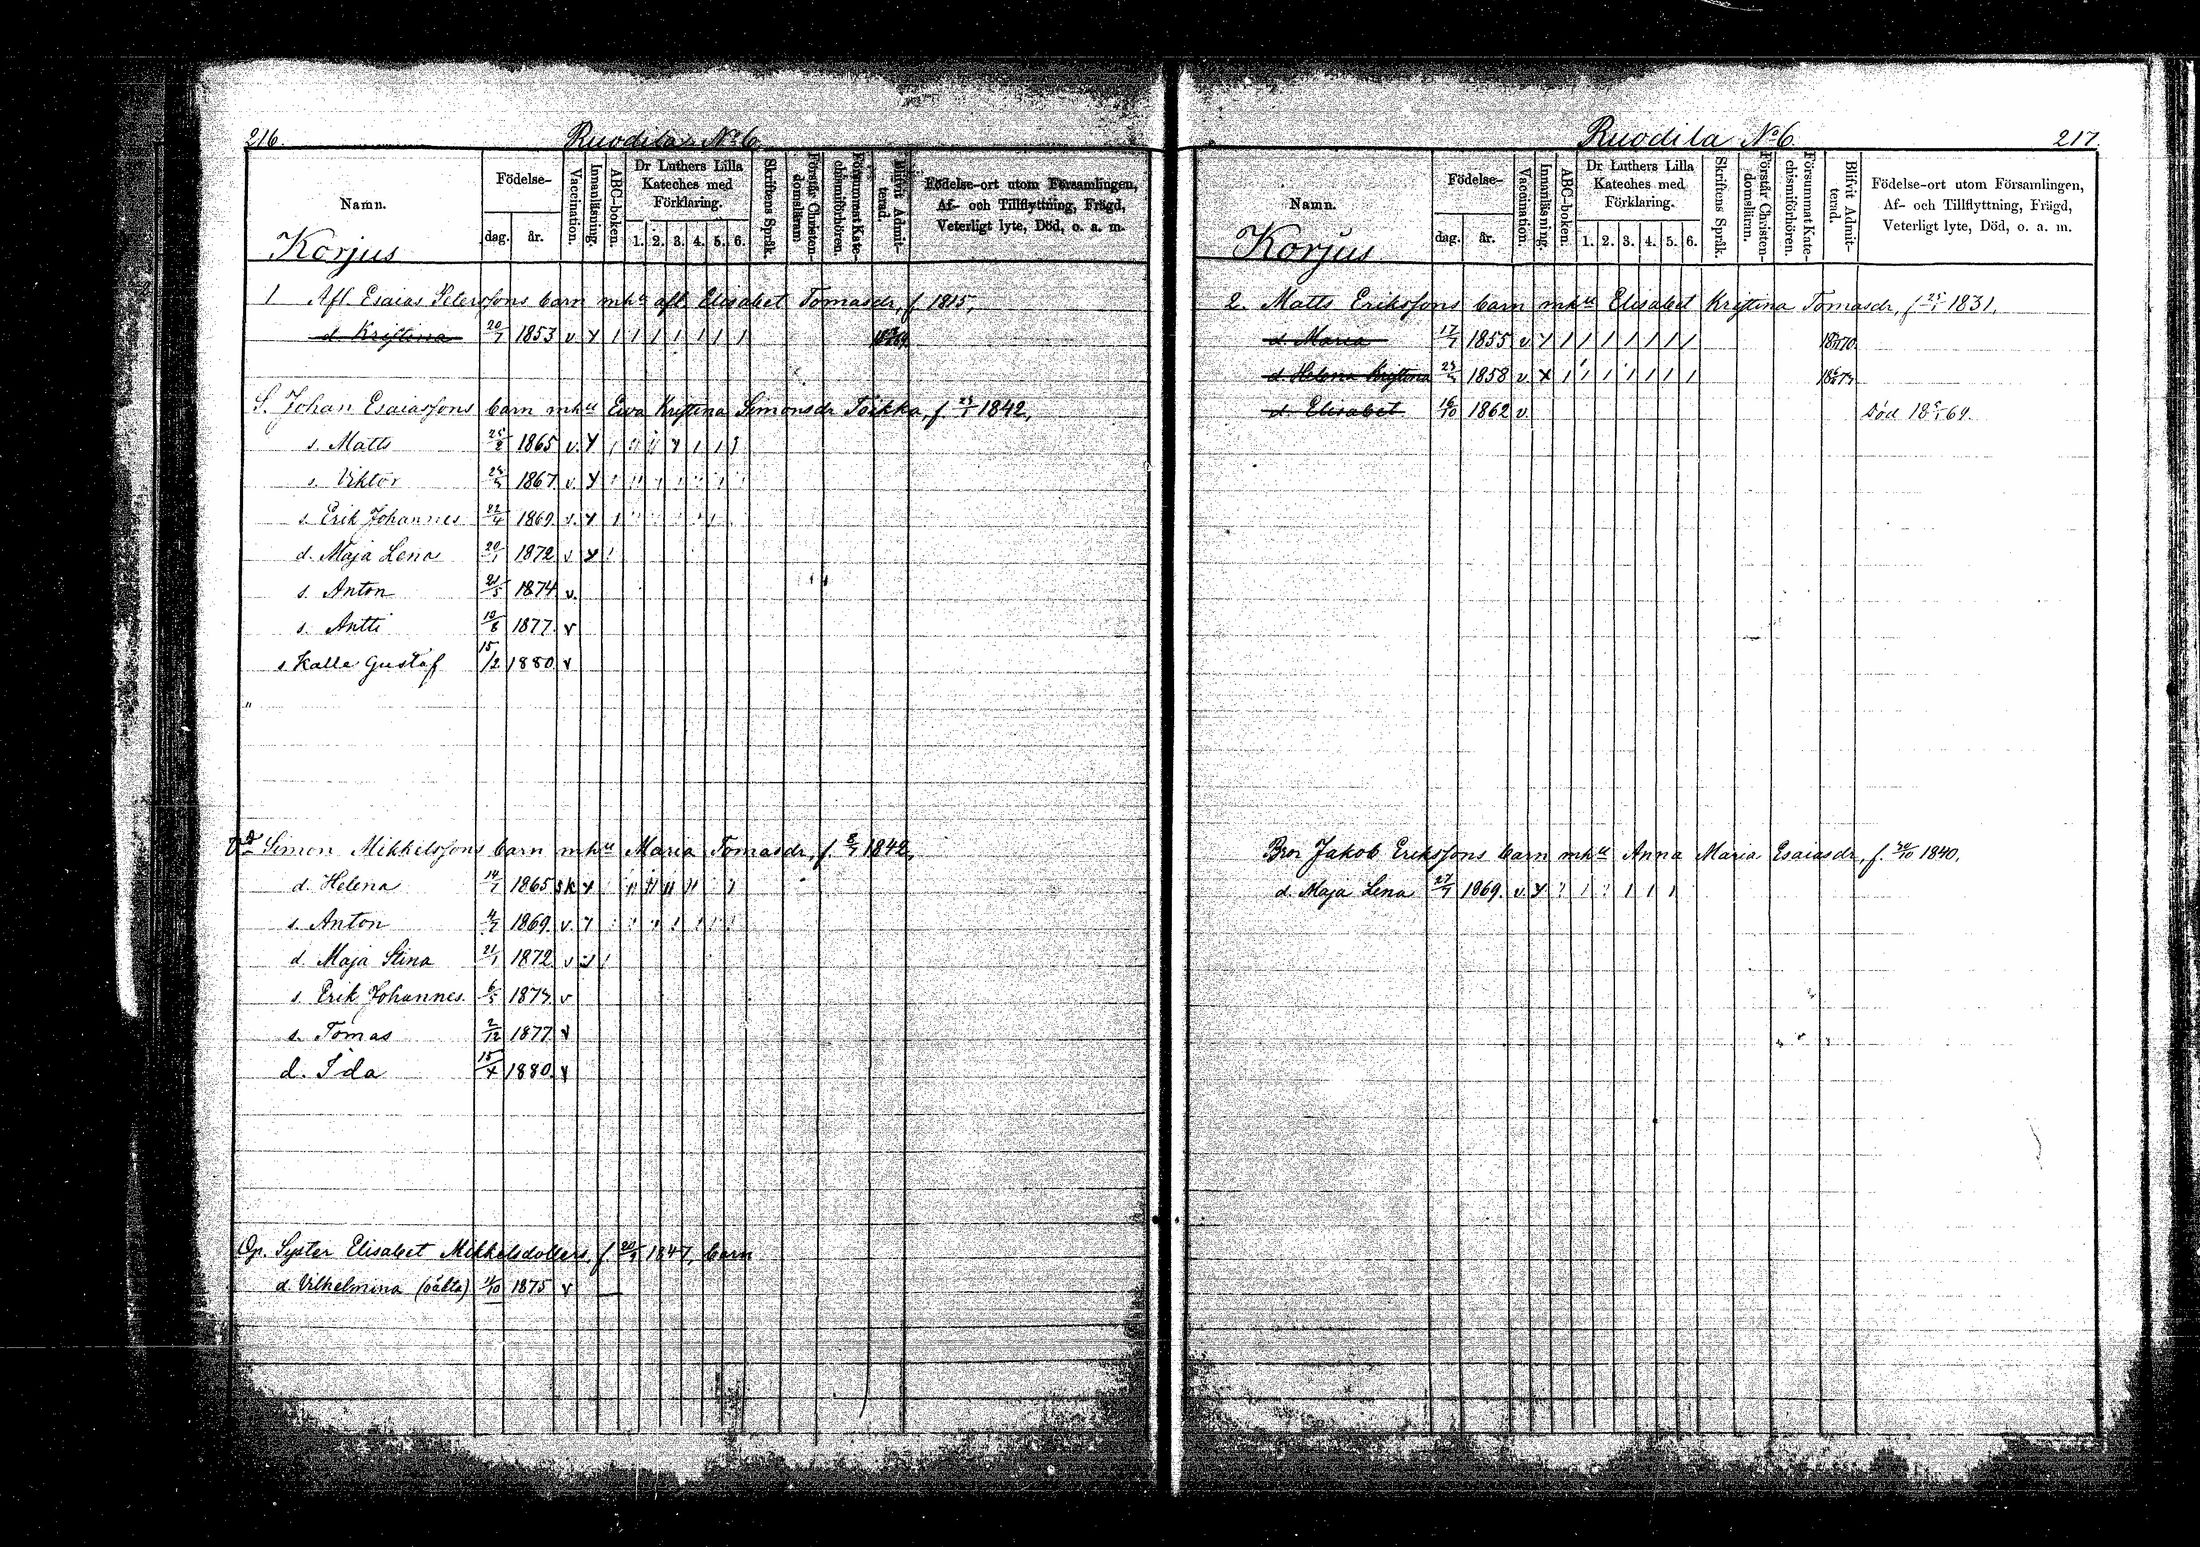 216.
Ruodila No 6.
Namn.
Födelse-
dag.
år.
Vaccination.
Innanläsning.
ABC-boken.
Dr Luthers Lilla
Kateches med
Förklaring.
1. 2. 3. 4. 5. 6.
Skriftens Språk.
Förstår Christen-
domsläran.
Försummat Kate-
chismiförhören.
Blifvit Admit-
terad.
Födelse-ort utom Församlingen,
Af- och Tillflyttning, Frägd,
Veterligt lyte, Död, o. a. m.
Korjus
1 Afl Esaias Petersons barn mhu afl Elisabet Tomasdr, f 1815,
d. Kristina 20/7 1853 v
S. Johan Esaiassons barn mhu Ewa Kristina Simonsdr Töikka, f. 1842,
s. Matts 1865 v.
s. Viktor 1867 v.
s. Erik Johannes 22/4 1869 v.
d. Maja Lena 20/1 1872 v
s. Anton 21/5 1874 v.
s. Antti 1877 v
s. Kalle Gustaf 15/2 1880 v
Simon Mikkelssons barn mhu Maria Tomasdr, f. 1842,
d. Helena 14/1 1865 sk
s. Anton 1869 v.
d. Maja Stina 21/1 1872 v
s. Erik Johannes. v
s. Tomas 2/12 1877 v
d. Ida 15/4 1880. v
Syster Elisabet Mikkelsdotters, f. 1847, barn
d. Vilhelmina (oäkta) 1875 v
Ruodila No 6.
217.
Namn.
Födelse-
dag.
år.
Vaccination.
Innanläsning.
ABC-boken.
Dr Luthers Lilla
Kateches med
Förklaring.
1. 2. 3. 4. 5. 6.
Skriftens Språk.
Förstår Christen-
domsläran.
Försummat Kate-
chismiförhören.
Blifvit Admit-
terad.
Födelse-ort utom Församlingen,
Af- och Tillflyttning, Frägd,
Veterligt lyte, Död, o. a. m.
Korjus
2. Matts Erikssons barn mhu Elisabet Kristina Tomasdr, f 1831.
d. Maria 17/7 1855 v
d. Helena Kristina 1858 v.
d. Elisabet 16/10 1862 v. död
Bror Jakob Erikssons barn mhu Anna Maria Esaiasdr, f. 30/10 1840.
d. Maja Lena 27/7 1869. v